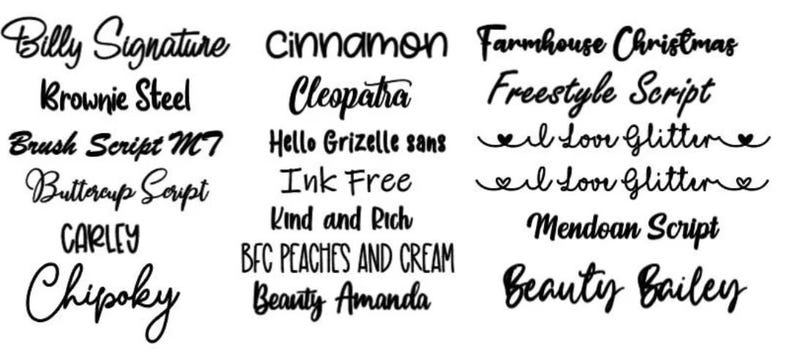 Billy Signature
Brownie Steel
Brush Script MT
Buttercup Script
CARLEY
Chipoky
Cinnamon
Cleopatra
Hello Grizelle sans
Ink Free
Kind and Rich
BFC PEACHES AND CREAM
Beauty Amanda
Farmhouse Christmas
Freestyle Script
I Love Glitter
I Love Glitter
Mendoan Script
Beauty Bailey